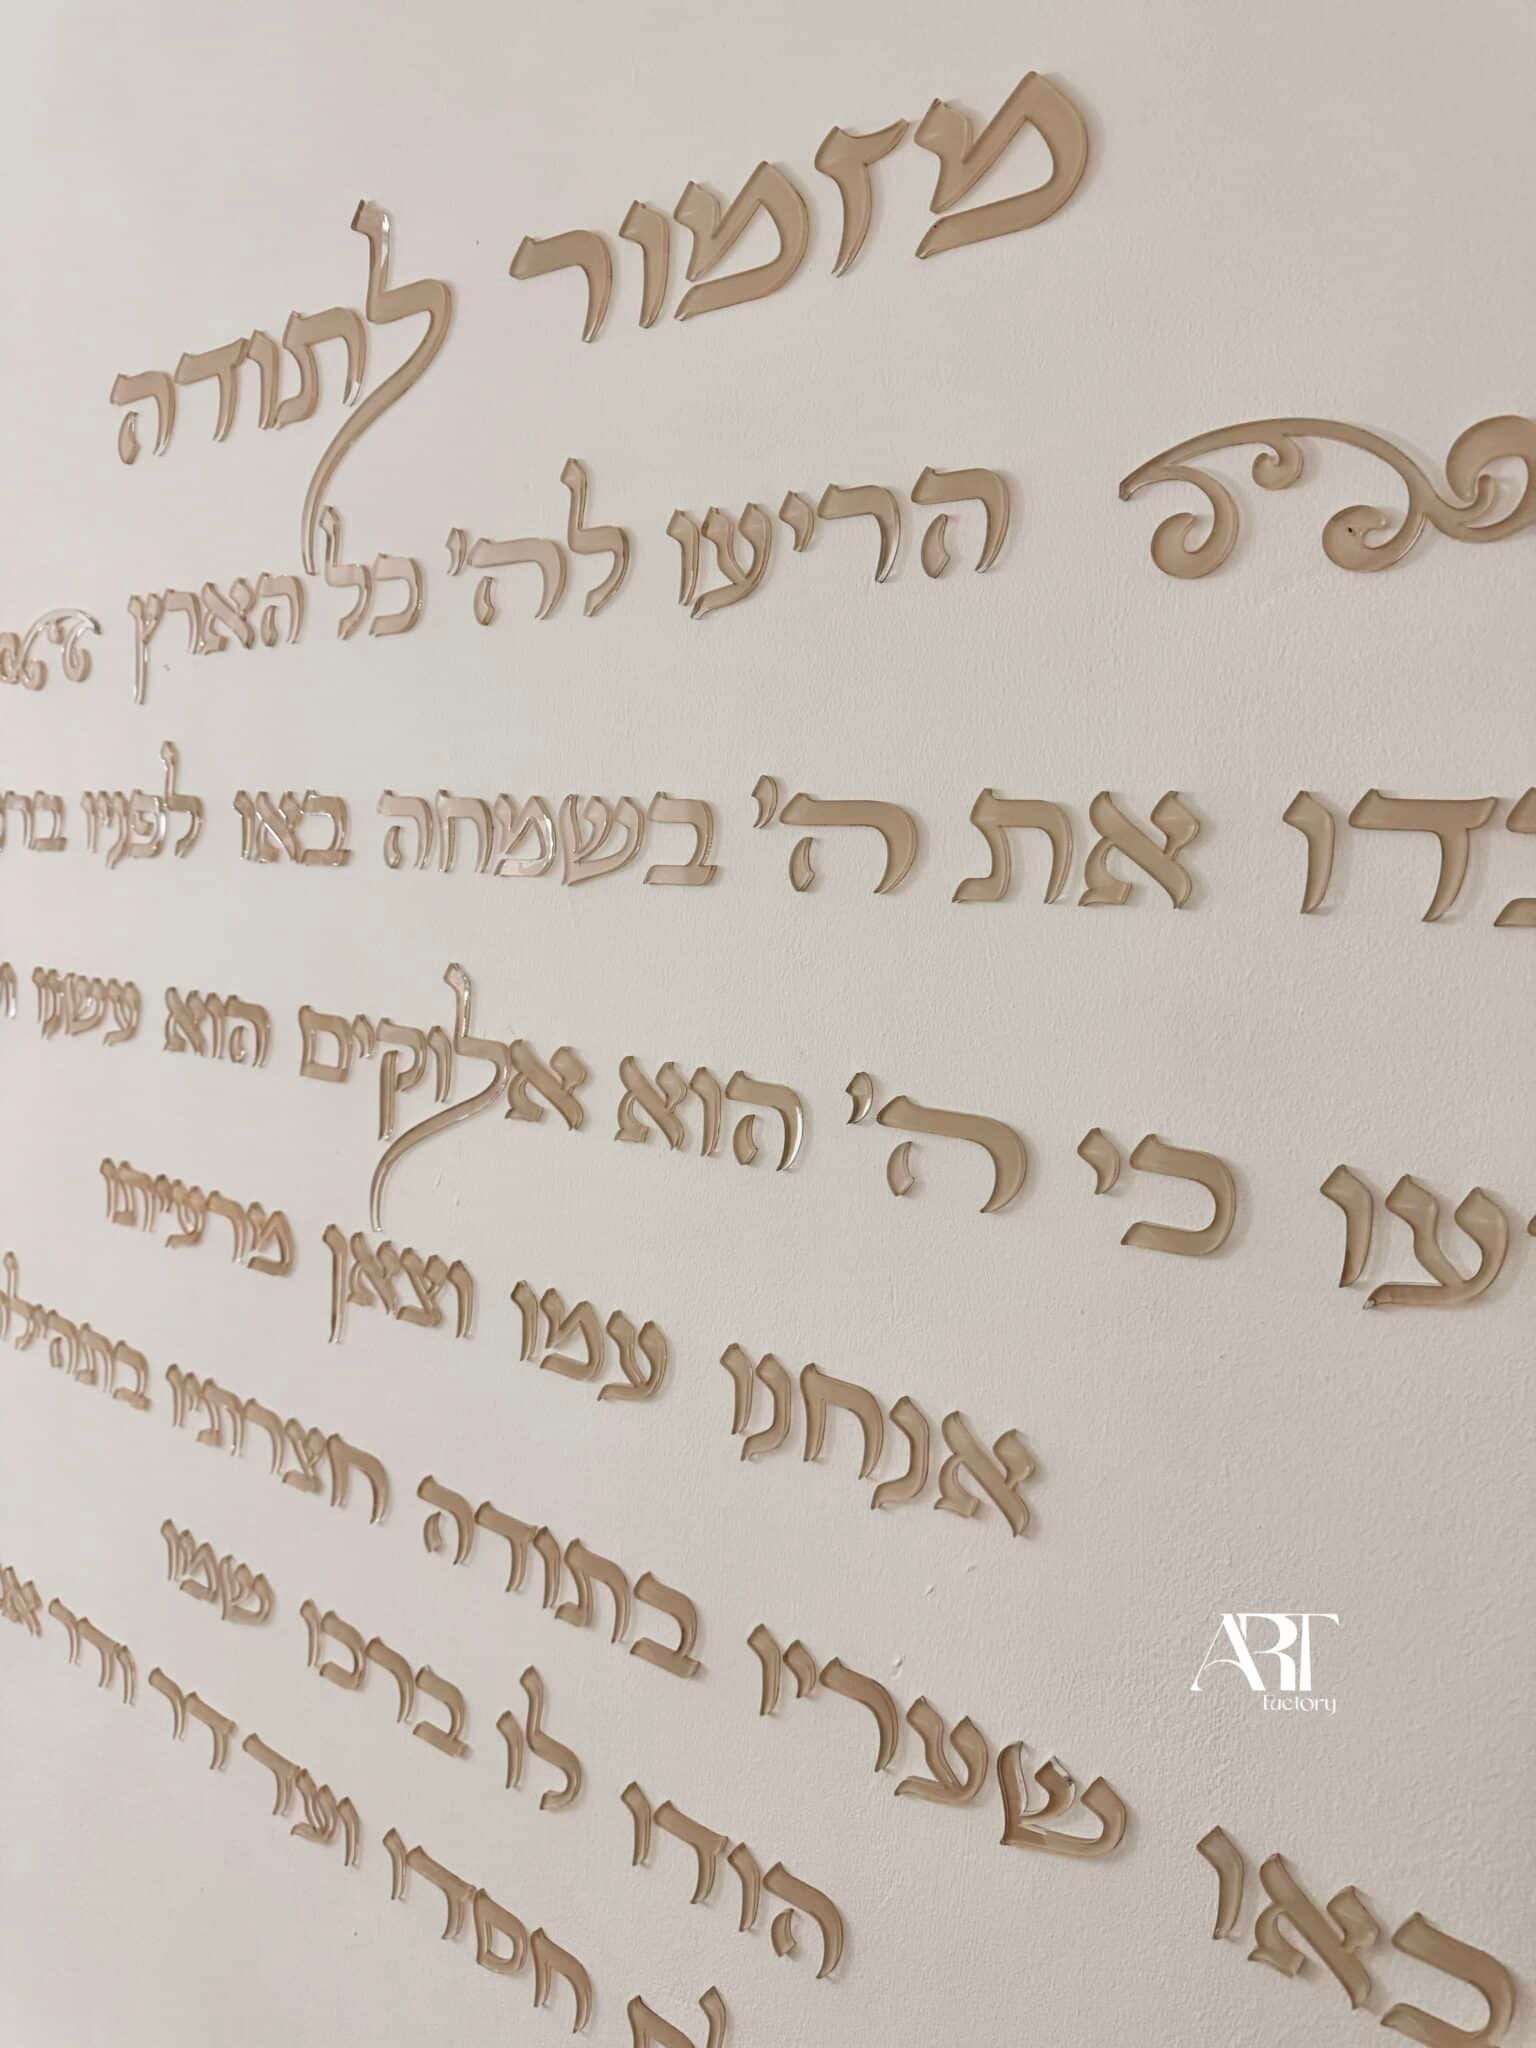 מזמור לתודה
הריעו לה' כל הארץ
את ה' בשמחה באו לפניו
כי ה' הוא אלוקים הוא עישנו
אנחנו עמו וצאן מרעיתו
באו שעריו בתודה חצרתיו
הודו לו ברכו שמו
חסדו ועד דר ודר
ART
Factory